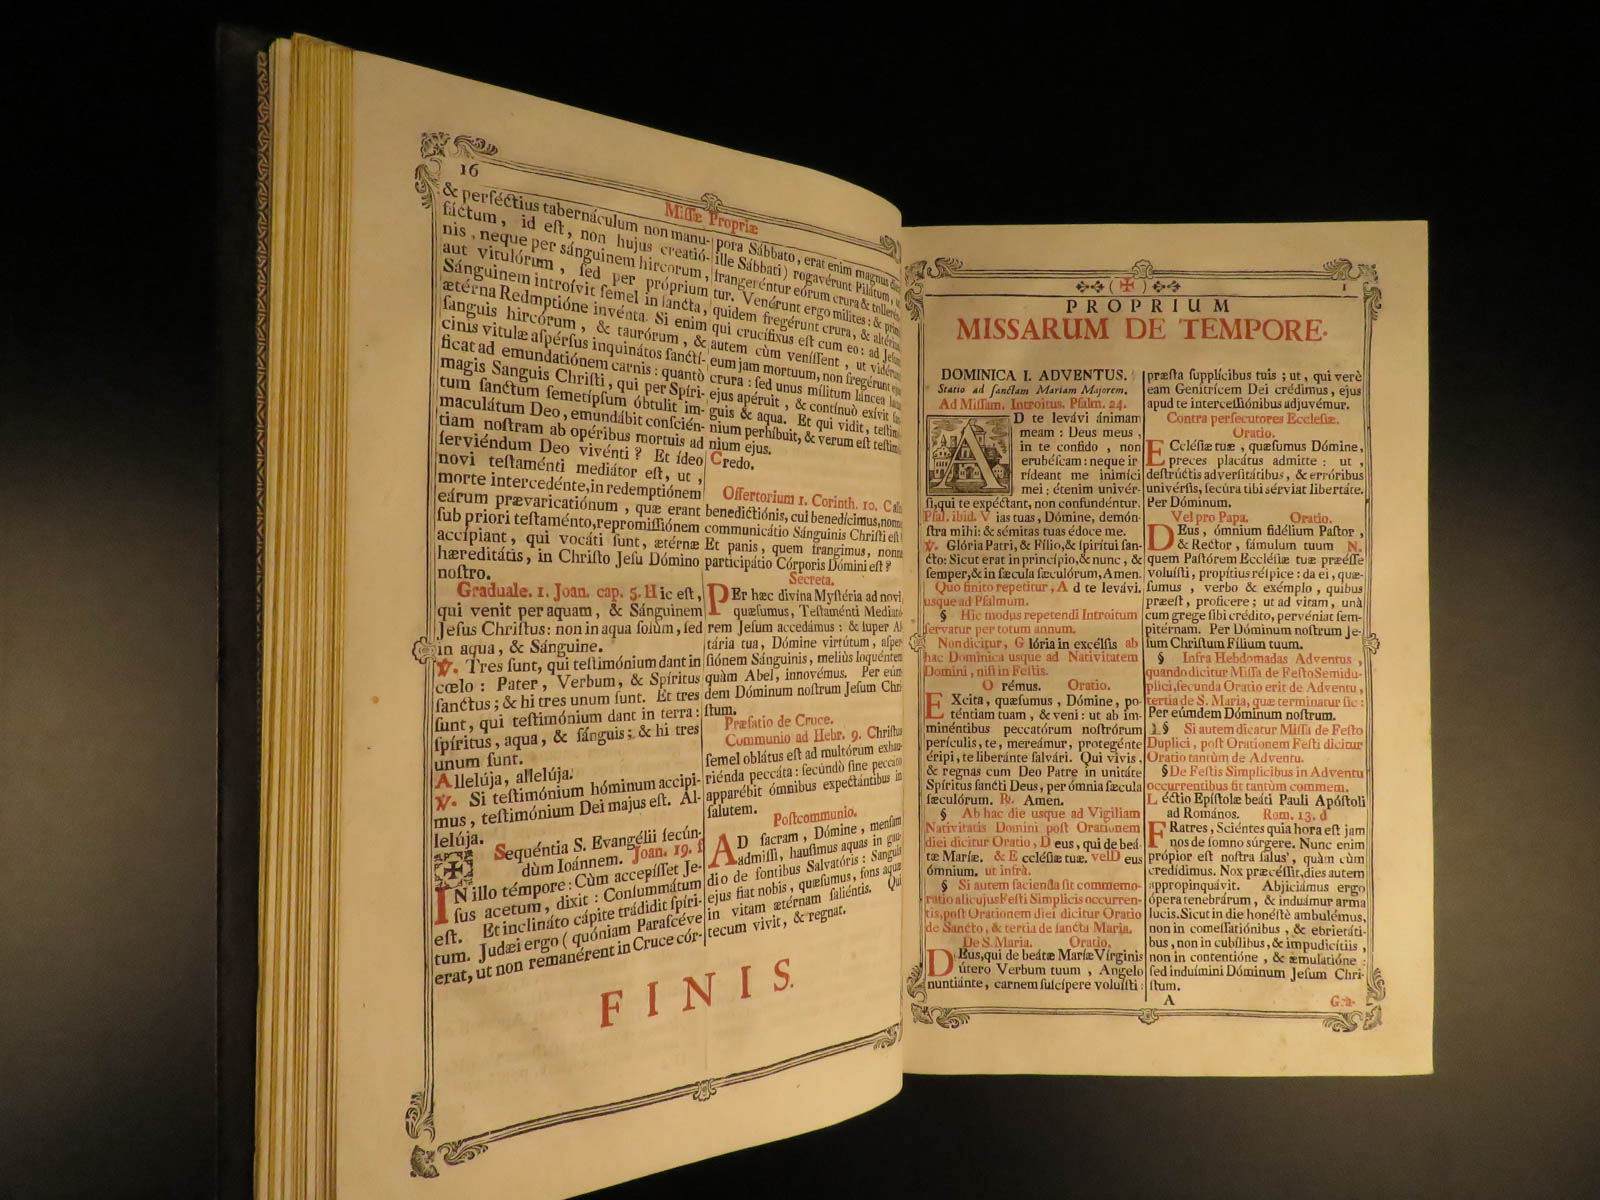 16
Missæ Propriæ
& perféctius tabernáculum non manu-
fáctum, id eſt, non hujus creatió-
nis, neque per sánguinem hircorum,
aut vitulórum, ſed per próprium
Sánguinem introſvit femel in ſancta,
ætérna Redmptióne invénta. Si enim
ſanguis hircórum, & taurórum, &
cinis vitulæ aſpérſus inquinátos ſanctí-
ficat ad emundatiónem carnis: quantò
magis Sanguis Chriſti, qui per Spíri-
tum ſanctum ſemetípſum óbtulit im-
maculátum Deo, emundábit conſcién-
tiam noſtram ab opéribus mortuis ad
ſerviéndum Deo vivénti? Et ídeo
novi teſtaménti mediátor eſt, ut,
morte intercedénte, in redemptiónem
eárum prævaricatiónum, quæ erant
ſub priori teſtaménto, repromiſſiónem
accípiant, qui vocáti ſunt, ætérnæ
hæreditátis, in Chriſto Jeſu Dómino
noſtro.
Graduale. 1. Joan. cap. 5. Hic eſt,
qui venit per aquam, & Sánguinem
Jeſus Chriſtus: non in aqua ſolùm, ſed
in aqua, & Sánguine.
℣. Tres ſunt, qui teſtimónium dant in
cœlo: Pater, Verbum, & Spíritus
ſanctus; & hi tres unum ſunt. Et tres
ſunt, qui teſtimónium dant in terra:
ſpíritus, aqua, & ſánguis; & hi tres
unum ſunt.
Allelúja, allelúja.
℣. Si teſtimónium hóminum accipi-
mus, teſtimónium Dei majus eſt. Al-
lelúja.
Sequéntia S. Evangélii ſecún-
dùm Ioánnem. Joan. 19. f
IN illo témpore: Cùm accepíſſet Je-
ſus acetum, dixit: Conſummátum
eſt. Et inclináto cápite trádidit ſpíri-
tum. Judæi ergo (quóniam Paraſcéve
erat, ut non remanérent in Cruce cór-
pora Sábbato, erat enim magnus
ille Sábbati) rogavérunt Pilátum,
frangeréntur eórum crura & tolle
tur. Venérunt ergo milites: & pri
quidem fregérunt crura, & altér
qui crucifíxus eſt cum eo: ad Jeſ
autem cùm veníſſent, ut vidér
eum jam mortuum, non fregérunt
crura: ſed unus mílitum láncea
ejus apéruit, & contínuò exívit
guis & aqua. Et qui vidit, teſtim
nium perhíbuit, & verum eſt teſtim
nium ejus.
Credo.
Offertorium 1. Corinth. 10. Cal
benedictiónis, cui benedícimus, nonn
communicátio Sánguinis Chriſti eſt
Et panis, quem frangimus, nonne
participátio Córporis Dómini eſt?
Secreta.
PEr hæc divína Myſtéria ad novi,
quæſumus, Teſtaménti Mediató
rem Jeſum accedámus: & ſuper Al
tária tua, Dómine virtútum, aſper
ſiónem Sánguinis, meliùs loquéntem
quàm Abel, innovémus. Per eún
dem Dóminum noſtrum Jeſum Chri
ſtum.
Præfatio de Cruce.
Communio ad Hebr. 9. Chriſtus
ſemel oblátus eſt ad multórum exhau-
riénda peccáta: ſecúndò ſine peccáto
apparébit ómnibus expectántibus in
ſalutem.
Poſtcommunio.
AD ſacram, Dómine, menſam
admiſſi, hauſimus aquas in gau-
dio de fontibus Salvatóris: Sanguis
ejus fiat nobis, quæſumus, fons aquæ
in vitam ætérnam ſaliéntis. Qui
tecum vivit, & regnat.
FINIS.
1
PROPRIUM
MISSARUM DE TEMPORE.
DOMINICA I. ADVENTUS.
Statio ad ſanctam Mariam Majorem.
Ad Miſſam. Introitus. Pſalm. 24.
AD te levávi ánimam
meam: Deus meus,
in te confído, non
erubéſcam: neque ir-
rídeant me inimíci
mei: étenim univér-
ſi, qui te expéctant, non confundéntur.
Pſal. ibid. Vias tuas, Dómine, demón-
ſtra mihi: & sémitas tuas édoce me.
℣. Glória Patri, & Fílio, & ſpirítui ſan-
cto: Sicut erat in princípio, & nunc, &
ſemper, & in ſæcula ſæculórum, Amen.
Quo finito repetitur, Ad te levávi.
usque ad Pſalmum.
§ Hic modus repetendi Introitum
ſervatur per totum annum.
Non dicitur, Glória in excélſis ab
hac Dominica usque ad Nativitatem
Domini, niſi in Feſtis.
Orémus. Oratio.
EXcita, quæſumus, Dómine, po-
téntiam tuam, & veni: ut ab im-
minéntibus peccatórum noſtrórum
perículis, te, mereámur, protegénte
éripi, te liberánte ſalvári. Qui vivis,
& regnas cum Deo Patre in unitáte
Spíritus ſancti Deus, per ómnia ſæcula
ſæculórum. ℟. Amen.
§ Ab hac die usque ad Vigiliam
Nativitatis Domini poſt Orationem
diei dicitur Oratio, Deus, qui de beá-
tæ Maríæ. & Eccléſiæ tuæ. vel Deus
ómnium. ut infrà.
§ Si autem facienda ſit commemo-
ratio alicujus Feſti Simplicis occurren-
tis, poſt Orationem diei dicitur Oratio
de Sancto, & tertia de ſancta Maria.
De S. Maria. Oratio.
DEus, qui de beátæ Maríæ Vírginis
útero Verbum tuum, Angelo
nuntiánte, carnem ſuſcípere voluíſti:
præſta ſupplícibus tuis; ut, qui verè
eam Genitrícem Dei crédimus, ejus
apud te interceſſiónibus adjuvémur.
Contra perſecutores Eccleſiæ.
Oratio.
ECcléſiæ tuæ, quæſumus Dómine,
preces placátus admitte: ut,
deſtrúctis adverſitátibus, & erróribus
univérſis, ſecúra tibi sérviat libertáte.
Per Dóminum.
Vel pro Papa. Oratio.
DEus, ómnium fidélium Paſtor,
& Rector, fámulum tuum N.
quem Paſtórem Eccléſiæ tuæ præéſſe
voluíſti, propítius réſpice: da ei, quæ-
ſumus, verbo & exémplo, quibus
præeſt, profícere; ut ad vitam, unà
cum grege ſibi crédito, pervéniat ſem-
pitérnam. Per Dóminum noſtrum Je-
ſum Chriſtum Fílium tuum.
§ Infra Hebdomadas Adventus,
quando dicitur Miſſa de Feſto Semidu-
plici, ſecunda Oratio erit de Adventu,
tertia de S. Maria, quæ terminatur ſic:
Per eúmdem Dóminum noſtrum.
§ Si autem dicatur Miſſa de Feſto
Duplici, poſt Orationem Feſti dicitur
Oratio tantùm de Adventu.
§ De Feſtis Simplicibus in Adventu
occurrentibus fit tantùm commem.
Léctio Epíſtolæ beáti Pauli Apóſtoli
ad Romános. Rom. 13. d
FRatres, Sciéntes quia hora eſt jam
nos de ſomno súrgere. Nunc enim
própior eſt noſtra ſalus, quàm cùm
credídimus. Nox præcéſſit, dies autem
appropinquávit. Abjiciámus ergo
ópera tenebrárum, & induámur arma
lucis. Sicut in die honéſtè ambulémus,
non in comeſſatiónibus, & ebrietáti-
bus, non in cubílibus, & impudicítiis,
non in contentióne, & æmulatióne:
ſed induímini Dóminum Jeſum Chri-
ſtum.
A
Gra-